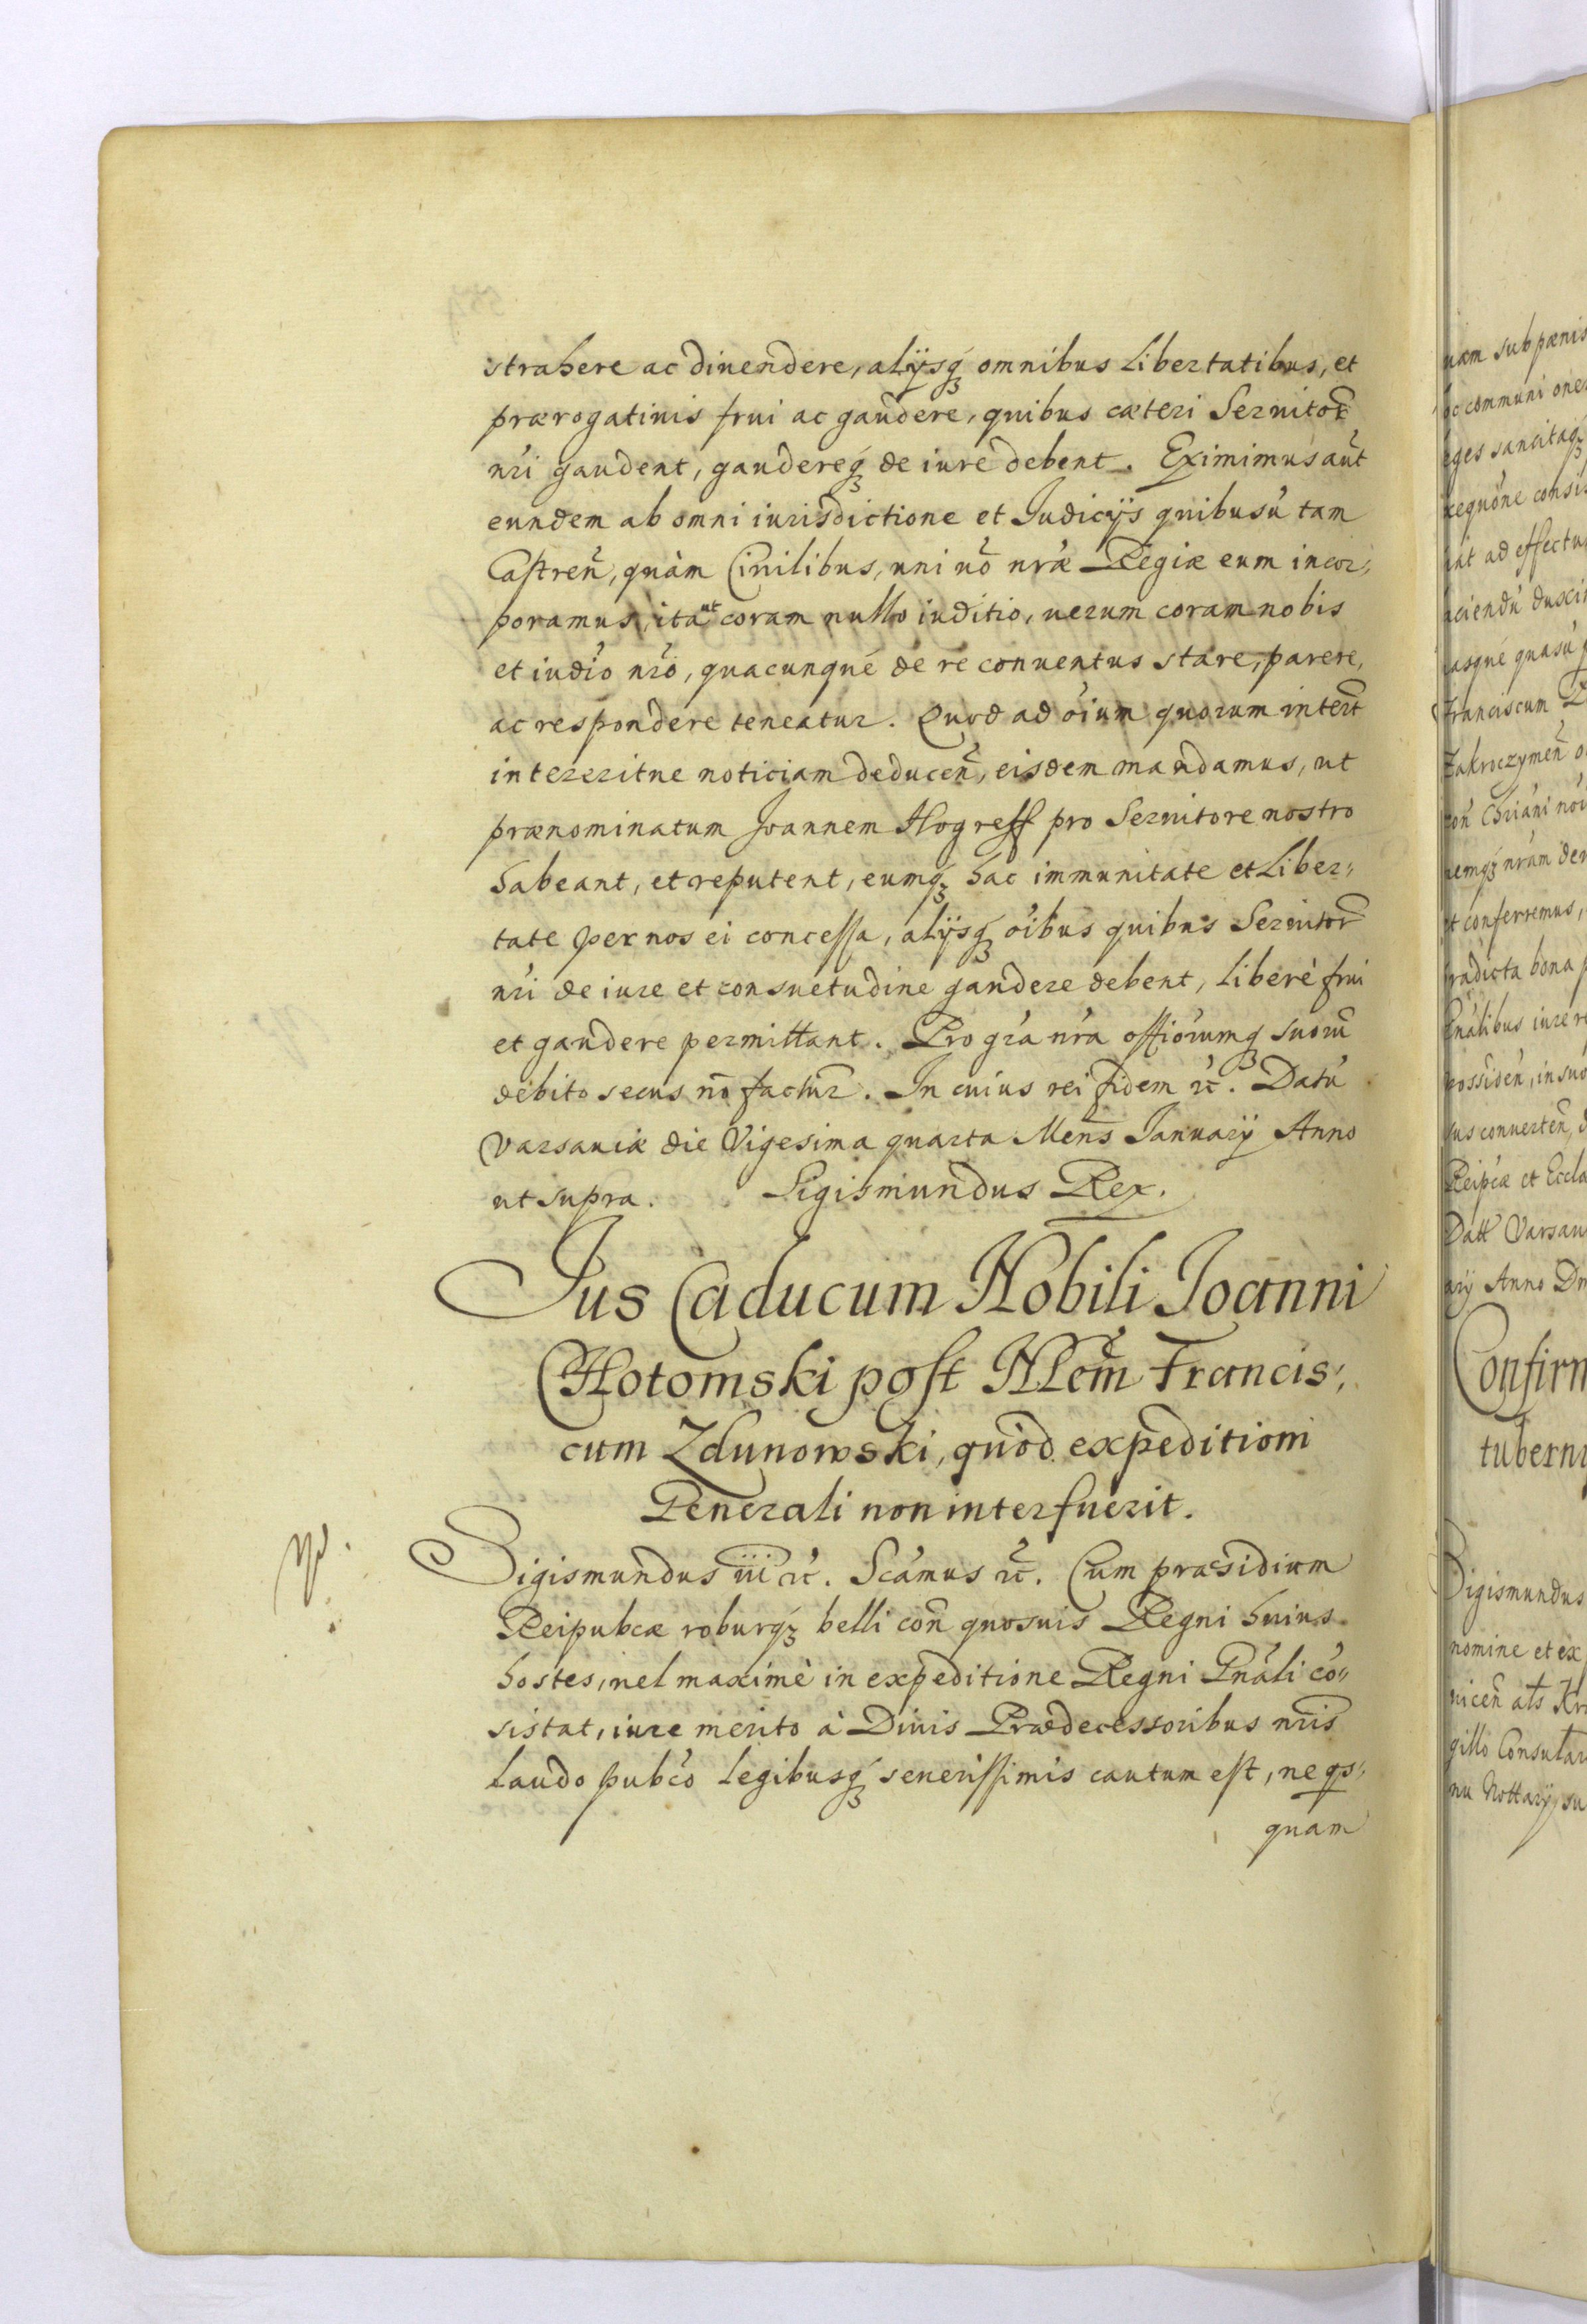 strahere ac diuendere, alÿsq́ꝫ omnibus libertatibus, et
prærogatiuis frui ac gaudere, quibus cæteri Seruitor̃
nr̃i gaudent, gaudereq́ꝫ de iure debent. Eximimus aũt
eundem ab omni iurisdictione et Iudicÿs quibusú tam
Castreñ, quàm Ciuilibus, uni uõ nr̃æ Regiæ eum incor,,
poramus, ita ut coram nullo iuditio, uerum coram nobis
et iudĩo nr̃o, quacunqué de re conuentus stare, parere,
ac respondere teneatur. Quod ad õium quorum interẽt
intereritue noticiam deduceñ, eisdem mandamus, ut
prænominatum Joannem Hogreff pro Seruitore nostro
habeant, et reputent, eumq́ꝫ hac immunitate et liber,,
tate per nos ei concessa, alÿsq́ꝫ õibus quibus Seruitor̃
nr̃i de iure et consuetudine gaudere debent, liberè frui
et gaudere permittant. Pro gr̃a nr̃a offiorumq́ꝫ suorũ
debito secus nõ factur̃. In cuius rei fidem ꝛc̃. Datũ
Varsauiæ die Vigesima quarta Meñs Ianuarÿ Anno
ut supra. Sigismundus Rex.
Jus Caducum Nobili Joanni
CHotomski post NLem̃ Francis,,
cum Zdunowski, quòd expeditioni
Generali non interfuerit.
Sigismundus iii ꝛc̃. Scãmus ꝛc̃. Cum præsidium
Reipubcæ roburq́ꝫ belli coñ quosuis Regni huius
hostes, uel maximè in expeditione Regni Gnãli cõ,,
sistat, iure merito à Diuis Prædecessoribus nr̃is
laudo pubc̃o legibusq́ꝫ seuerissimis cautum est, ne qs,,
quam
uam sub pænis
oc communi one
eges sancitaq́ꝫ
equõne consis
nt ad effectu
aciendũ duxi
asqué quasũ
Franciscum
Zakroczymeñ
coñ Chr̃iani
nemq́ꝫ nr̃um
t conferremus,
rædicta bona
Gnãlibus iure
possideñ, in suo
us conuerteñ,
Reipc̃æ et Eccla
Datt Varsau
ary Anno Dn
Confirm
tuberni
Sigismundus
nomine et ex
uiceñ als Kr
gillo Consular
nu Nottarÿ su